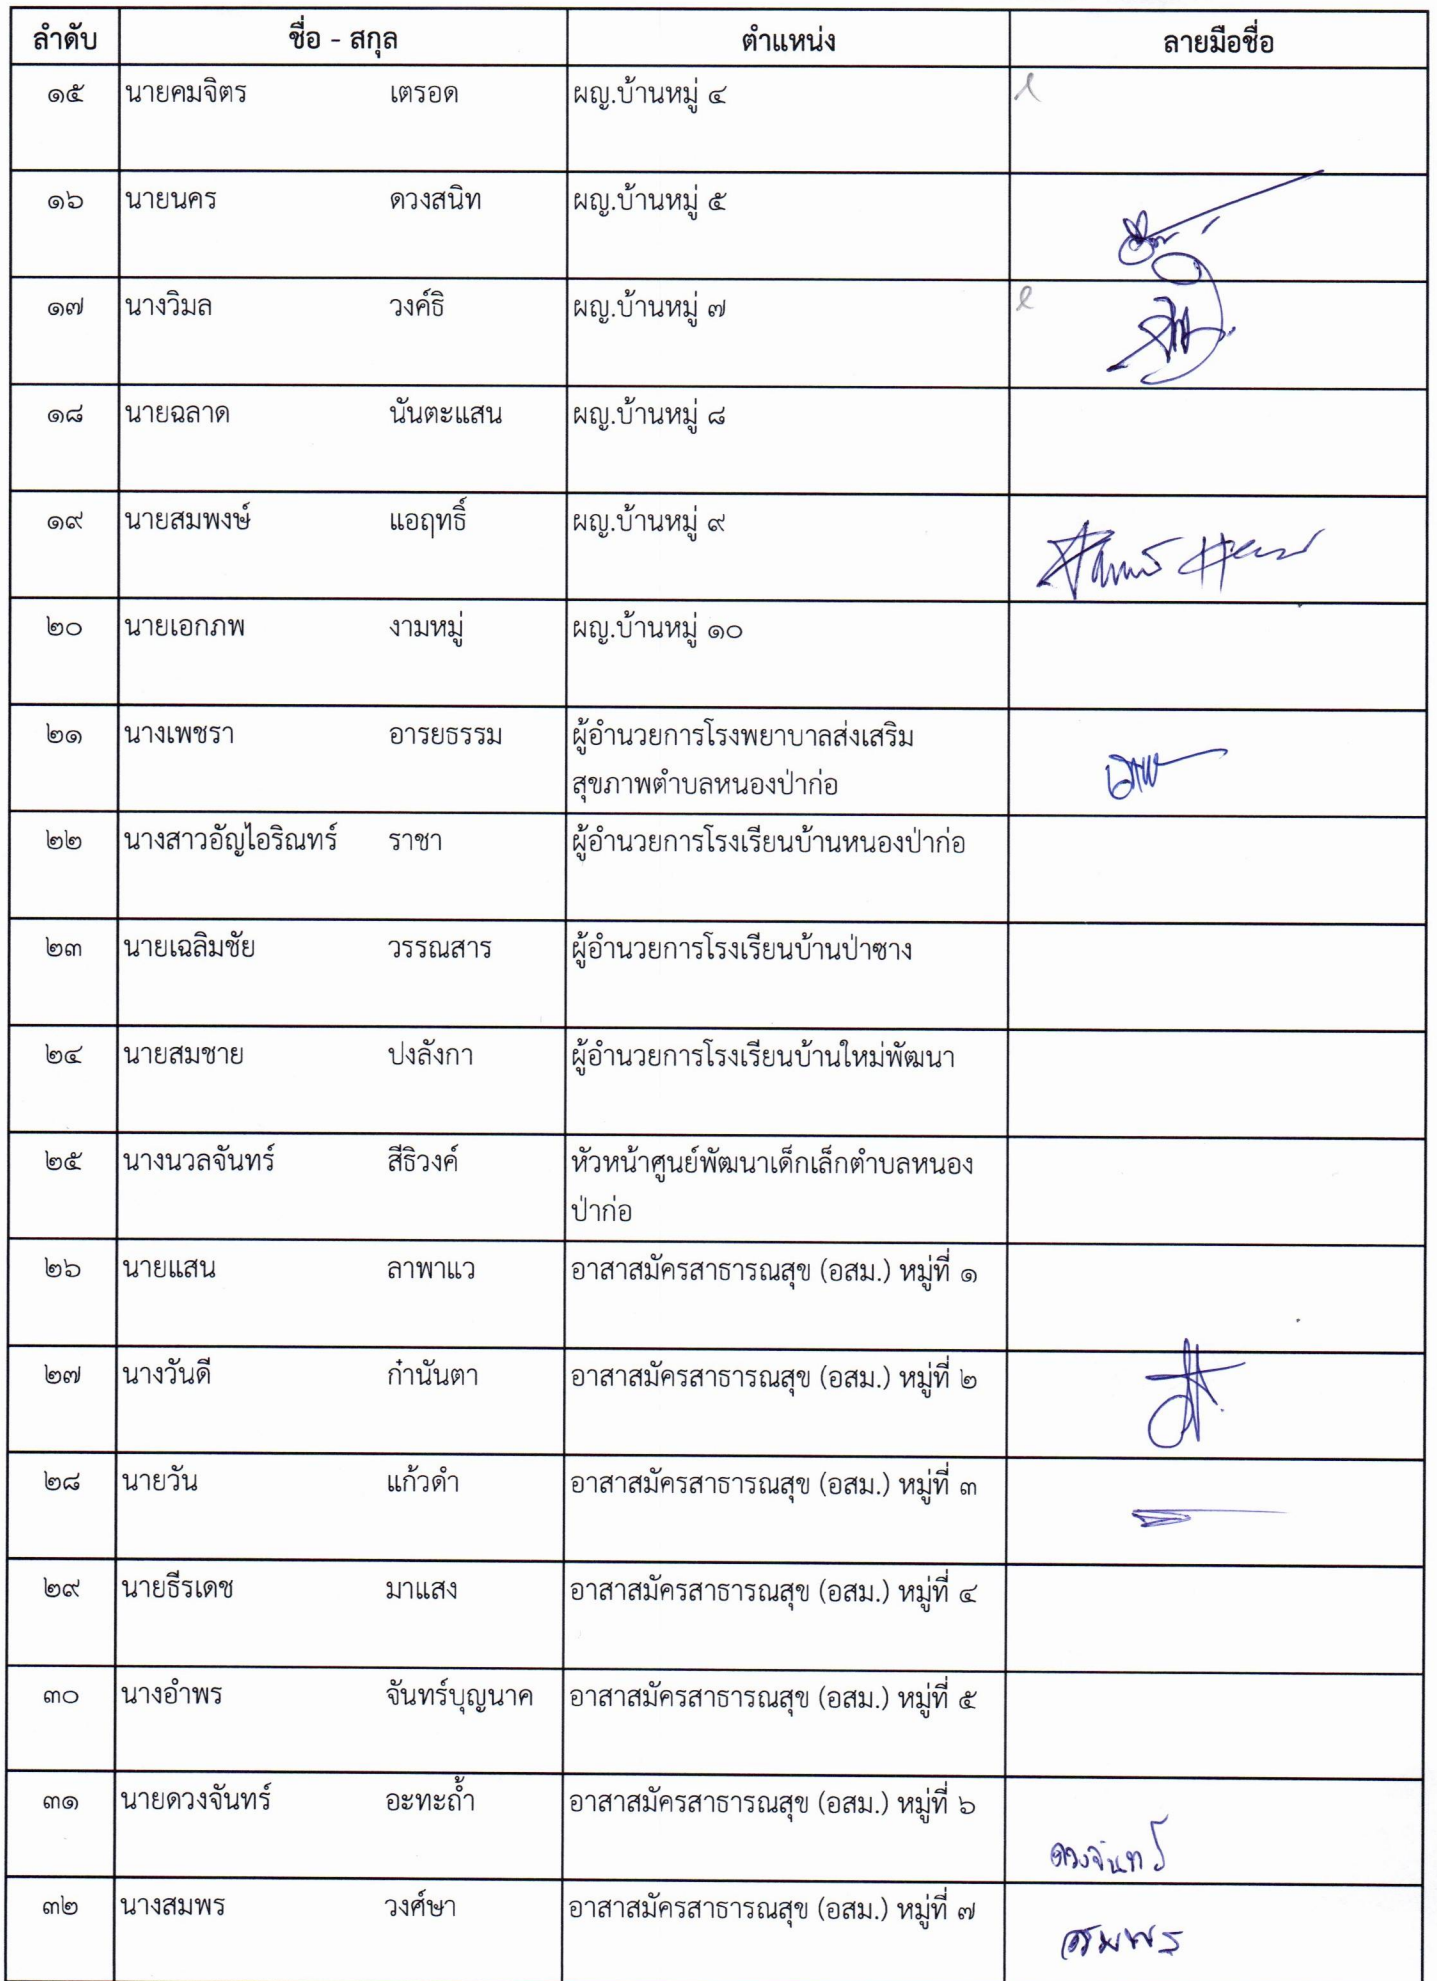 ลำดับ ชื่อ - สกุล ตำแหน่ง ลายมือชื่อ
๑๕ นายคมจิตร เตรอด ผญ.บ้านหมู่ ๔
๑๖ นายนคร ดวงสนิท ผญ.บ้านหมู่ ๕
๑๗ นางวิมล วงค์ธิ ผญ.บ้านหมู่ ๗
๑๘ นายฉลาด นันตะแสน ผญ.บ้านหมู่ ๘
๑๙ นายสมพงษ์ แอฤทธิ์ ผญ.บ้านหมู่ ๙
๒๐ นายเอกภพ งามหมู่ ผญ.บ้านหมู่ ๑๐
๒๑ นางเพชรา อารยธรรม ผู้อำนวยการโรงพยาบาลส่งเสริม
สุขภาพตำบลหนองป่าก่อ
๒๒ นางสาวอัญไอริณทร์ ราชา ผู้อำนวยการโรงเรียนบ้านหนองป่าก่อ
๒๓ นายเฉลิมชัย วรรณสาร ผู้อำนวยการโรงเรียนบ้านป่าซาง
๒๔ นายสมชาย ปงลังกา ผู้อำนวยการโรงเรียนบ้านใหม่พัฒนา
๒๕ นางนวลจันทร์ สีธิวงค์ หัวหน้าศูนย์พัฒนาเด็กเล็กตำบลหนอง
ป่าก่อ
๒๖ นายแสน ลาพาแว อาสาสมัครสาธารณสุข (อสม.) หมู่ที่ ๑
๒๗ นางวันดี ก๋านันตา อาสาสมัครสาธารณสุข (อสม.) หมู่ที่ ๒
๒๘ นายวัน แก้วดำ อาสาสมัครสาธารณสุข (อสม.) หมู่ที่ ๓
๒๙ นายธีรเดช มาแสง อาสาสมัครสาธารณสุข (อสม.) หมู่ที่ ๔
๓๐ นางอำพร จันทร์บุญนาค อาสาสมัครสาธารณสุข (อสม.) หมู่ที่ ๕
๓๑ นายดวงจันทร์ อะทะถ้ำ อาสาสมัครสาธารณสุข (อสม.) หมู่ที่ ๖
ดวงจันทร์
๓๒ นางสมพร วงศ์ษา อาสาสมัครสาธารณสุข (อสม.) หมู่ที่ ๗
สมพร